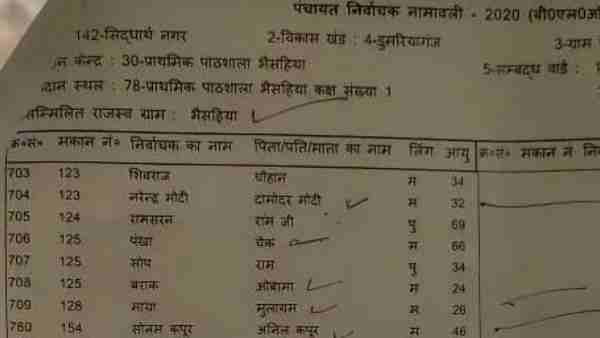 पंचायत निर्वाचक नामावली - 2020 (बी0एल0ओ
142-सिद्धार्थ नगर 2-विकास खंड : 4-डुमरियागंज 3-ग्राम
केन्द्र : 30-प्राथमिक पाठशाला भैसहिया 5-सम्बद्ध वार्ड :
स्थल : 78-प्राथमिक पाठशाला भैसहिया कक्ष संख्या 1
सम्मिलित राजस्व ग्राम : भैसहिया
क्र०सं० मकान नं० निर्वाचक का नाम पिता/पति/माता का नाम लिंग आयु क्र०सं० मकान नं०
703 123 शिवराज चौहान म 34
704 123 नरेन्द्र मोदी दामोदर मोदी म 32
705 124 रामसरन राम जी पु 69
706 125 पंखा चेक म 66
707 125 सोप राम पु 34
708 125 बराक ओबामा म 24
709 126 माया मुलायम म 26
760 154 सोनम कपूर अनिल कपूर म 46